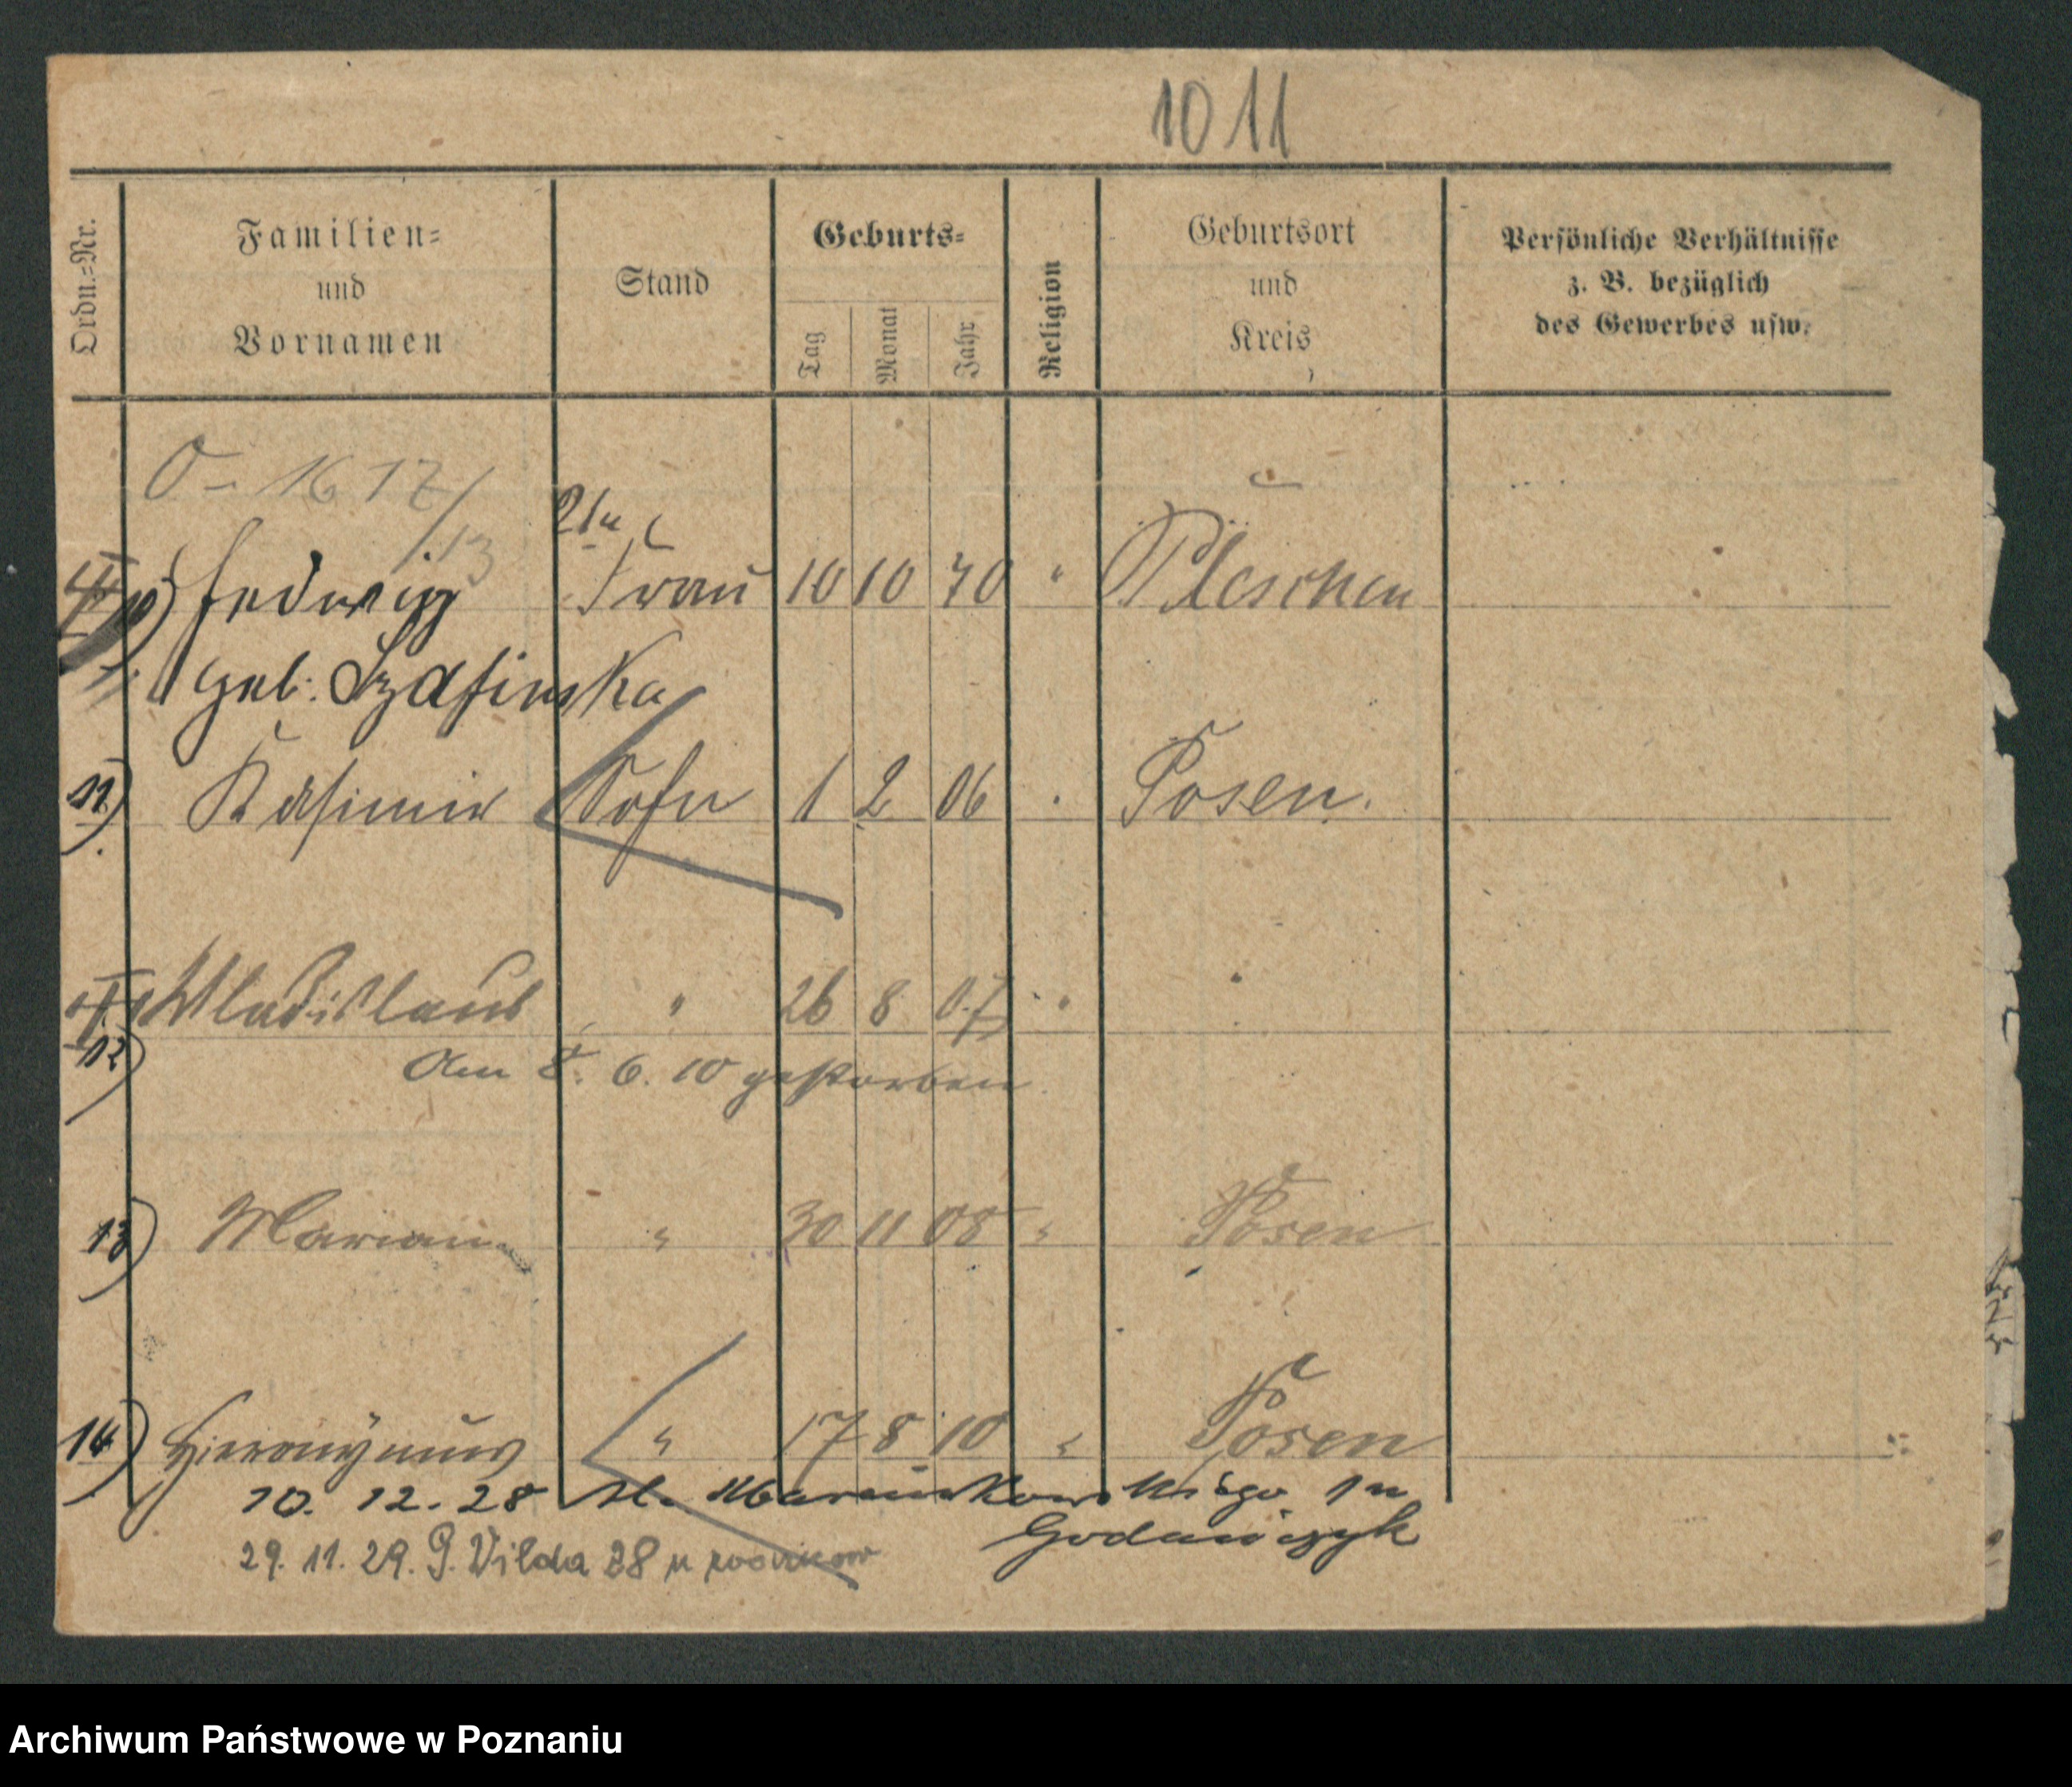 1011
Ordn.=Nr. Familien= und Vornamen Stand Geburts= Tag Monat Jahr Religion Geburtsort und Kreis Persönliche Verhältnisse z. B. bezüglich des Gewerbes usw.
O- 1617/13
10) Hedwig Frau 10 10 70 " Pleschen
geb. Szafinska
11) Kasimir Sohn 1 2 06 " Posen.
12) Wladislaus " 26 8 07 " "
am 8. 6. 10 gestorben
13) Marian " 30 11 08 " Posen
14) Hieronÿmus " 17 8 10 " Posen
10. 12. 28
Godańczyk
29. 11. 29. G. Wilda 38 u rodziców
Archiwum Państwowe w Poznaniu